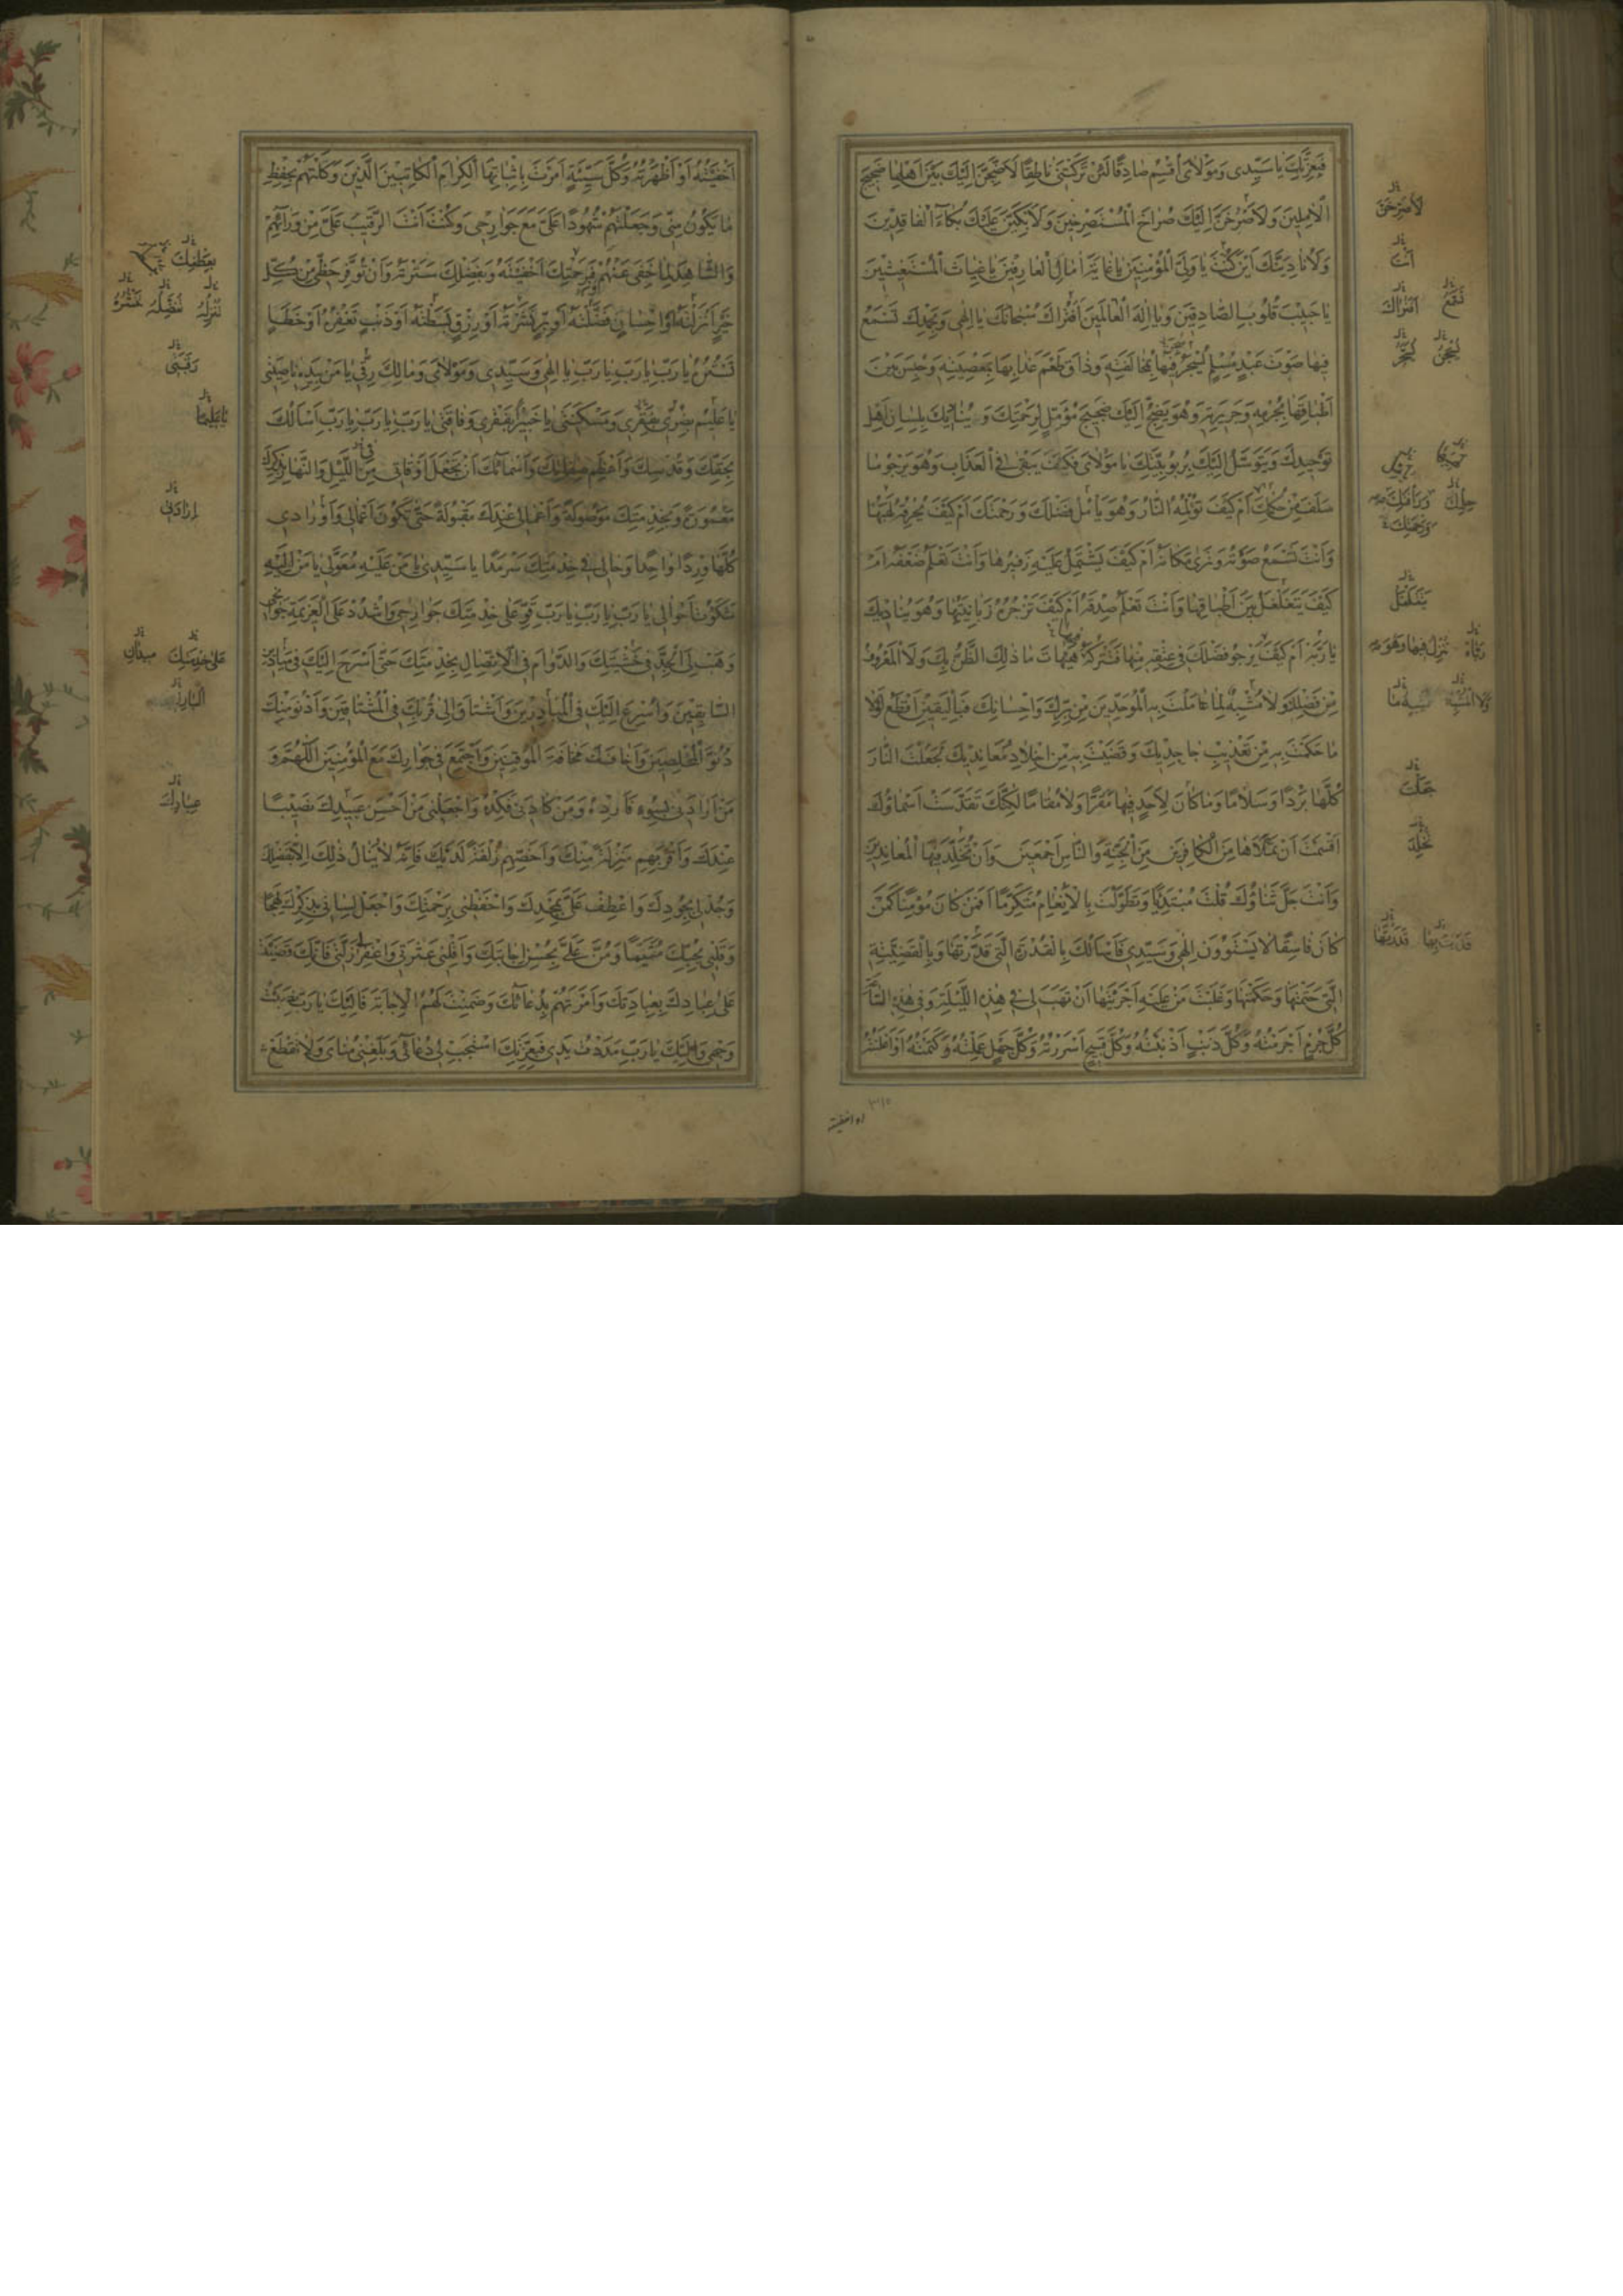 فَبِعِزَّتِكَ يَا سَيِّدِي وَمَوْلَايَ اُقْسِمُ صَادِقًا لَئِنْ تَرَكْتَنِي نَاطِقًا لَاَضِجَّنَّ اِلَيْكَ بَيْنَ اَهْلِهَا ضَجِيجَ
الْآمِلِينَ وَلَاَصْرُخَنَّ اِلَيْكَ صُرَاخَ الْمُسْتَصْرِخِينَ وَلَاَبْكِيَنَّ عَلَيْكَ بُكَاءَ الْفَاقِدِينَ
وَلَاُنَادِيَنَّكَ اَيْنَ كُنْتَ يَا وَلِيَّ الْمُؤْمِنِينَ يَا غَايَةَ اٰمَالِ الْعَارِفِينَ يَا غِيَاثَ الْمُسْتَغِيثِينَ
يَا حَبِيبَ قُلُوبِ الصَّادِقِينَ وَيَا اِلٰهَ الْعَالَمِينَ اَفَتُرَاكَ سُبْحَانَكَ يَا اِلٰهِي وَبِحَمْدِكَ تَسْمَعُ
فِيهَا صَوْتَ عَبْدٍ مُسْلِمٍ فِيهَا بِمُخَالَفَتِهِ وَذَاقَ طَعْمَ عَذَابِهَا بِمَعْصِيَتِهِ وَحُبِسَ بَيْنَ
اَطْبَاقِهَا بِجُرْمِهِ وَجَرِيرَتِهِ وَهُوَ يَضِجُّ اِلَيْكَ ضَجِيجَ مُؤَمِّلٍ لِرَحْمَتِكَ وَيُنَادِيكَ بِلِسَانِ اَهْلِ
تَوْحِيدِكَ وَيَتَوَسَّلُ اِلَيْكَ بِرُبُوبِيَّتِكَ يَا مَوْلَايَ فَكَيْفَ يَبْقَى فِي الْعَذَابِ وَهُوَ يَرْجُو مَا
سَلَفَ مِنْ حِلْمِكَ اَمْ كَيْفَ تُؤْلِمُهُ النَّارُ وَهُوَ يَأْمُلُ فَضْلَكَ وَرَحْمَتَكَ اَمْ كَيْفَ يُحْرِقُهُ لَهِيبُهَا
وَاَنْتَ تَسْمَعُ صَوْتَهُ وَتَرٰى مَكَانَهُ اَمْ كَيْفَ يَشْتَمِلُ عَلَيْهِ زَفِيرُهَا وَاَنْتَ تَعْلَمُ ضَعْفَهُ اَمْ
كَيْفَ يَتَغَلْغَلُ بَيْنَ اَطْبَاقِهَا وَاَنْتَ تَعْلَمُ صِدْقَهُ اَمْ كَيْفَ تَزْجُرُهُ زَبَانِيَتُهَا وَهُوَ يُنَادِيكَ
يَا رَبَّهُ اَمْ كَيْفَ يَرْجُو فَضْلَكَ فِي عِتْقِهِ مِنْهَا فَتَتْرُكُهُ فِيهَا هَيْهَاتَ مَا ذٰلِكَ الظَّنُّ بِكَ وَلَا الْمَعْرُوفُ
مِنْ فَضْلِكَ وَلَا مُشْبِهٌ لِمَا عَامَلْتَ بِهِ الْمُوَحِّدِينَ مِنْ بِرِّكَ وَاِحْسَانِكَ فَبِالْيَقِينِ اَقْطَعُ لَوْلَا
مَا حَكَمْتَ بِهِ مِنْ تَعْذِيبِ جَاحِدِيكَ وَقَضَيْتَ بِهِ مِنْ اِخْلَادِ مُعَانِدِيكَ لَجَعَلْتَ النَّارَ
كُلَّهَا بَرْدًا وَسَلَامًا وَمَا كَانَ لِاَحَدٍ فِيهَا مَقَرًّا وَلَا مُقَامًا لٰكِنَّكَ تَقَدَّسَتْ اَسْمَاؤُكَ
اَقْسَمْتَ اَنْ تَمْلَاَهَا مِنَ الْكَافِرِينَ مِنَ الْجِنَّةِ وَالنَّاسِ اَجْمَعِينَ وَاَنْ تُخَلِّدَ فِيهَا الْمُعَانِدِينَ
وَاَنْتَ جَلَّ ثَنَاؤُكَ قُلْتَ مُبْتَدِئًا وَتَطَوَّلْتَ بِالْاِنْعَامِ مُتَكَرِّمًا اَفَمَنْ كَانَ مُؤْمِنًا كَمَنْ
كَانَ فَاسِقًا لَا يَسْتَوُونَ اِلٰهِي وَسَيِّدِي فَاَسْاَلُكَ بِالْقُدْرَةِ الَّتِي قَدَّرْتَهَا وَبِالْقَضِيَّةِ
الَّتِي حَتَمْتَهَا وَحَكَمْتَهَا وَغَلَبْتَ مَنْ عَلَيْهِ اَجْرَيْتَهَا اَنْ تَهَبَ لِي فِي هٰذِهِ اللَّيْلَةِ وَفِي هٰذِهِ السَّاعَةِ
كُلَّ جُرْمٍ اَجْرَمْتُهُ وَكُلَّ ذَنْبٍ اَذْنَبْتُهُ وَكُلَّ قَبِيحٍ اَسْرَرْتُهُ وَكُلَّ جَهْلٍ عَمِلْتُهُ وَكَتَمْتُهُ اَوْ اَعْلَنْتُهُ
لَاَصْرُخَنَّ
اَنْتَ
اَفَتُرَاكَ
يَتَغَلْغَلُ
جَعَلْتَ
تُخَلِّدَ
٣١٥
او اخفيته
اَخْفَيْتُهُ اَوْ اَظْهَرْتُهُ وَكُلَّ سَيِّئَةٍ اَمَرْتَ بِاِثْبَاتِهَا الْكِرَامَ الْكَاتِبِينَ الَّذِينَ وَكَّلْتَهُمْ بِحِفْظِ
مَا يَكُونُ مِنِّي وَجَعَلْتَهُمْ شُهُودًا عَلَيَّ مَعَ جَوَارِحِي وَكُنْتَ اَنْتَ الرَّقِيبَ عَلَيَّ مِنْ وَرَائِهِمْ
وَالشَّاهِدَ لِمَا خَفِيَ عَنْهُمْ وَبِرَحْمَتِكَ اَخْفَيْتَهُ وَبِفَضْلِكَ سَتَرْتَهُ وَاَنْ تُوَفِّرَ حَظِّي مِنْ كُلِّ
خَيْرٍ اَنْزَلْتَهُ اَوْ اِحْسَانٍ فَضَّلْتَهُ اَوْ بِرٍّ نَشَرْتَهُ اَوْ رِزْقٍ بَسَطْتَهُ اَوْ ذَنْبٍ تَغْفِرُهُ اَوْ خَطَاءٍ
تَسْتُرُهُ يَا رَبِّ يَا رَبِّ يَا رَبِّ يَا اِلٰهِي وَسَيِّدِي وَمَوْلَايَ وَمَالِكَ رِقِّي يَا مَنْ بِيَدِهِ نَاصِيَتِي
يَا عَلِيمُ بِضُرِّي وَمَسْكَنَتِي يَا خَبِيرُ بِفَقْرِي وَفَاقَتِي يَا رَبِّ يَا رَبِّ يَا رَبِّ اَسْاَلُكَ
بِحَقِّكَ وَقُدْسِكَ وَاَعْظَمِ صِفَاتِكَ وَاَسْمَائِكَ اَنْ تَجْعَلَ اَوْقَاتِي فِي اللَّيْلِ وَالنَّهَارِ بِذِكْرِكَ
مَعْمُورَةً وَبِخِدْمَتِكَ مَوْصُولَةً وَاَعْمَالِي عِنْدَكَ مَقْبُولَةً حَتّٰى تَكُونَ اَعْمَالِي وَاَوْرَادِي
كُلُّهَا وِرْدًا وَاحِدًا وَحَالِي فِي خِدْمَتِكَ سَرْمَدًا يَا سَيِّدِي يَا مَنْ عَلَيْهِ مُعَوَّلِي يَا مَنْ اِلَيْهِ
شَكَوْتُ اَحْوَالِي يَا رَبِّ يَا رَبِّ يَا رَبِّ قَوِّ عَلٰى خِدْمَتِكَ جَوَارِحِي وَاشْدُدْ عَلَى الْعَزِيمَةِ جَوَانِحِي
وَهَبْ لِيَ الْجِدَّ فِي خَشْيَتِكَ وَالدَّوَامَ فِي الْاِتِّصَالِ بِخِدْمَتِكَ حَتّٰى اَسْرَحَ اِلَيْكَ فِي مَيَادِينِ
السَّابِقِينَ وَاُسْرِعَ اِلَيْكَ فِي الْمُبَادِرِينَ وَاَشْتَاقَ اِلٰى قُرْبِكَ فِي الْمُشْتَاقِينَ وَاَدْنُوَ مِنْكَ
دُنُوَّ الْمُخْلِصِينَ وَاَخَافَكَ مَخَافَةَ الْمُوقِنِينَ وَاَجْتَمِعَ فِي جِوَارِكَ مَعَ الْمُؤْمِنِينَ اَللّٰهُمَّ وَ
مَنْ اَرَادَنِي بِسُوءٍ فَاَرِدْهُ وَمَنْ كَادَنِي فَكِدْهُ وَاجْعَلْنِي مِنْ اَحْسَنِ عَبِيدِكَ نَصِيبًا
عِنْدَكَ وَاَقْرَبِهِمْ مَنْزِلَةً مِنْكَ وَاَخَصِّهِمْ زُلْفَةً لَدَيْكَ فَاِنَّهُ لَا يُنَالُ ذٰلِكَ اِلَّا بِفَضْلِكَ
وَجُدْ لِي بِجُودِكَ وَاعْطِفْ عَلَيَّ بِمَجْدِكَ وَاحْفَظْنِي بِرَحْمَتِكَ وَاجْعَلْ لِسَانِي بِذِكْرِكَ لَهِجًا
وَقَلْبِي بِحُبِّكَ مُتَيَّمًا وَمُنَّ عَلَيَّ بِحُسْنِ اِجَابَتِكَ وَاَقِلْنِي عَثْرَتِي وَاغْفِرْ لِي زَلَّتِي فَاِنَّكَ قَضَيْتَ
عَلٰى عِبَادِكَ بِعِبَادَتِكَ وَاَمَرْتَهُمْ بِدُعَائِكَ وَضَمِنْتَ لَهُمُ الْاِجَابَةَ فَاِلَيْكَ يَا رَبِّ نَصَبْتُ
وَجْهِي وَاِلَيْكَ يَا رَبِّ مَدَدْتُ يَدِي فَبِعِزَّتِكَ اسْتَجِبْ لِي دُعَائِي وَبَلِّغْنِي مُنَايَ وَلَا تَقْطَعْ
تُنْزِلُهُ
تُفَضِّلُهُ
تَنْشُرُهُ
يَا عَلِيمًا
عَلٰى خِدْمَتِكَ
عِبَادِكَ